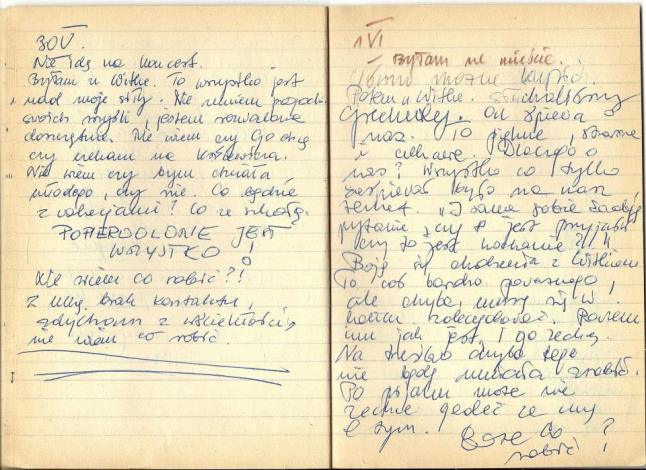 30 V.
Nie idę na koncert.
Byłam u Witka. To wszystko jest
nad moje siły. Nie umiem
swoich myśli, jestem
doszczętnie. Nie wiem czy Go chcę
czy czekam na
Nie wiem czy bym chciała
młodego, czy nie. Co będzie
z wakacjami? Co ze szkołą.
POPIERDOLONE JEST
WSZYSTKO!
Nie wiem co robić?!
Z brak kontaktu,
zdycham z wściekłości,
nie wiem co robić.
1 VI
Byłam na mieście.
można kupić.
Potem u Witka. Słuchaliśmy
On śpiewa o
nas. 10 piękne, straszne
i ciekawe. Dlaczego o
nas? Wszystko co tylko
zaśpiewał było na nasz
temat. "I sama sobie zadaję
pytanie czy jest przyjaźń
czy to jest kochanie?!"
Boję się chodzenia z Witkiem
To coś bardzo poważnego,
ale chyba muszę się w
końcu zdecydować. Powiem
mu jak jest, i go
Na trzeźwo chyba tego
nie będę umiała zrobić.
Po pijanu może nie
zechce gadać ze mną
o tym. Boże Co
robić?!